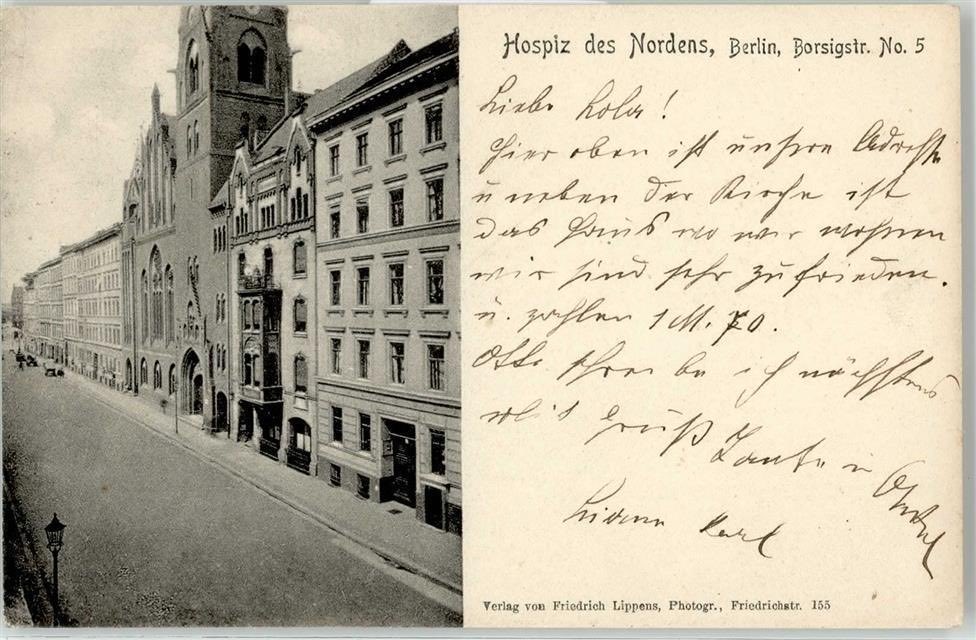 Hospiz des Nordens, Berlin, Borsigstr. No. 5
Liebe Lola!
Hier oben ist unsere Adresse
u neben der Kirche ist
das Haus wo wir wohnen
wir sind sehr zufrieden.
u. zahlen 1 M. 70.
Otto schreibe ich nächstens
Gruß Tante u Onkel
Karl
Verlag von Friedrich Lippens, Photogr., Friedrichstr. 155